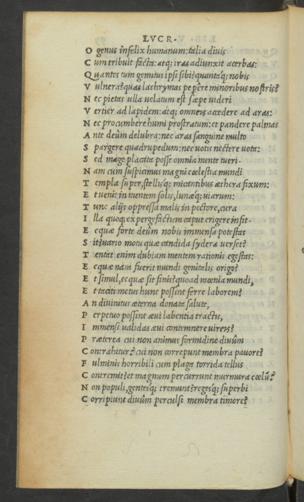 LVCR.
O genus infelix humanum: talia diuis
C um tribuit facta: atq; iras adiunxit acerbas:
Q uantos tum gemitus ipsi sibi: quantaq; nobis
V ulnera: quas lachrymas pepere minoribus nostris?
N ec pietas ulla uelatum est saepe uideri
V ertier ad lapidem: atq; omneis accedere ad aras:
N ec procumbere humi prostratum: et pandere palmas
A nte deum delubra: nec aras sanguine multo
S pargere quadrupedum: nec uotis nectere uota:
S ed mage placata posse omnia mente tueri.
N am cum suspicimus magni caelestia mundi
T empla super, stellisq; micantibus aethera fixum:
E t uenit in mentem solis, lunaeq; uiarum:
T unc alijs oppressa malis in pectore, cura
I lla quoq; expergefactum caput erigere infit
E cquae forte deum nobis immensa potestas
S it: uario motu quae candida sydera uerset?
T entat enim dubiam mentem rationis egestas:
E cquaenam fuerit mundi genitalis origo?
E t simul, ecquae sit finis: quoad moenia mundi,
E t taciti motus hunc possint ferre laborem?
A n diuinitus aeterna donata salute,
P erpetuo possint aeui labentia tractu,
I mmensi ualidas aeui contemnere uireis?
P raeterea cui non animus formidine diuum
C ontrahitur? cui non correpunt membra pauore?
F ulminis horribili cum plaga torrida tellus
C ontremit: et magnum percurrunt murmura coelum?
N on populi, gentesq; tremunt? regesq; superbi
C orripiunt diuum perculsi membra timore?